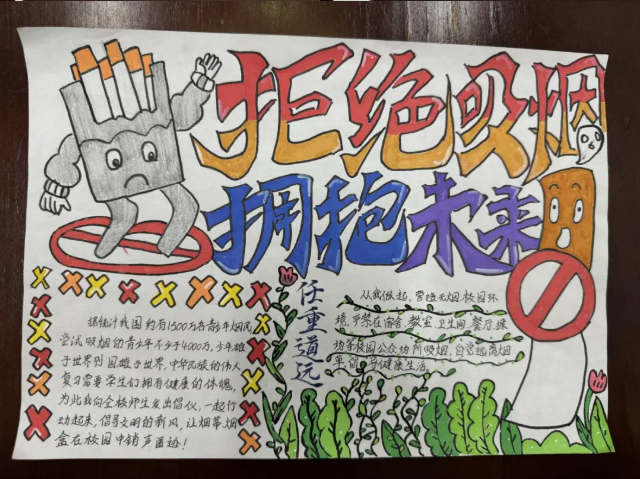 拒绝吸烟
拥抱未来
任重道远
据统计我国约有1500万名青少年烟民
尝试吸烟的青少年不少于4000万,少年雄
于世界则国雄于世界,中华民族的伟大
复兴需要学生们拥有健康的体魄,
为此我向全校师生发出倡仪,一起行
动起来,倡导文明的新风,让烟蒂烟
盒在校园中销声匿迹!
从我做起,营造无烟校园环
境,严禁在宿舍,教室,卫生间,餐厅,操
场等校园公众场所吸烟,自觉远离烟
草,倡导健康生活。